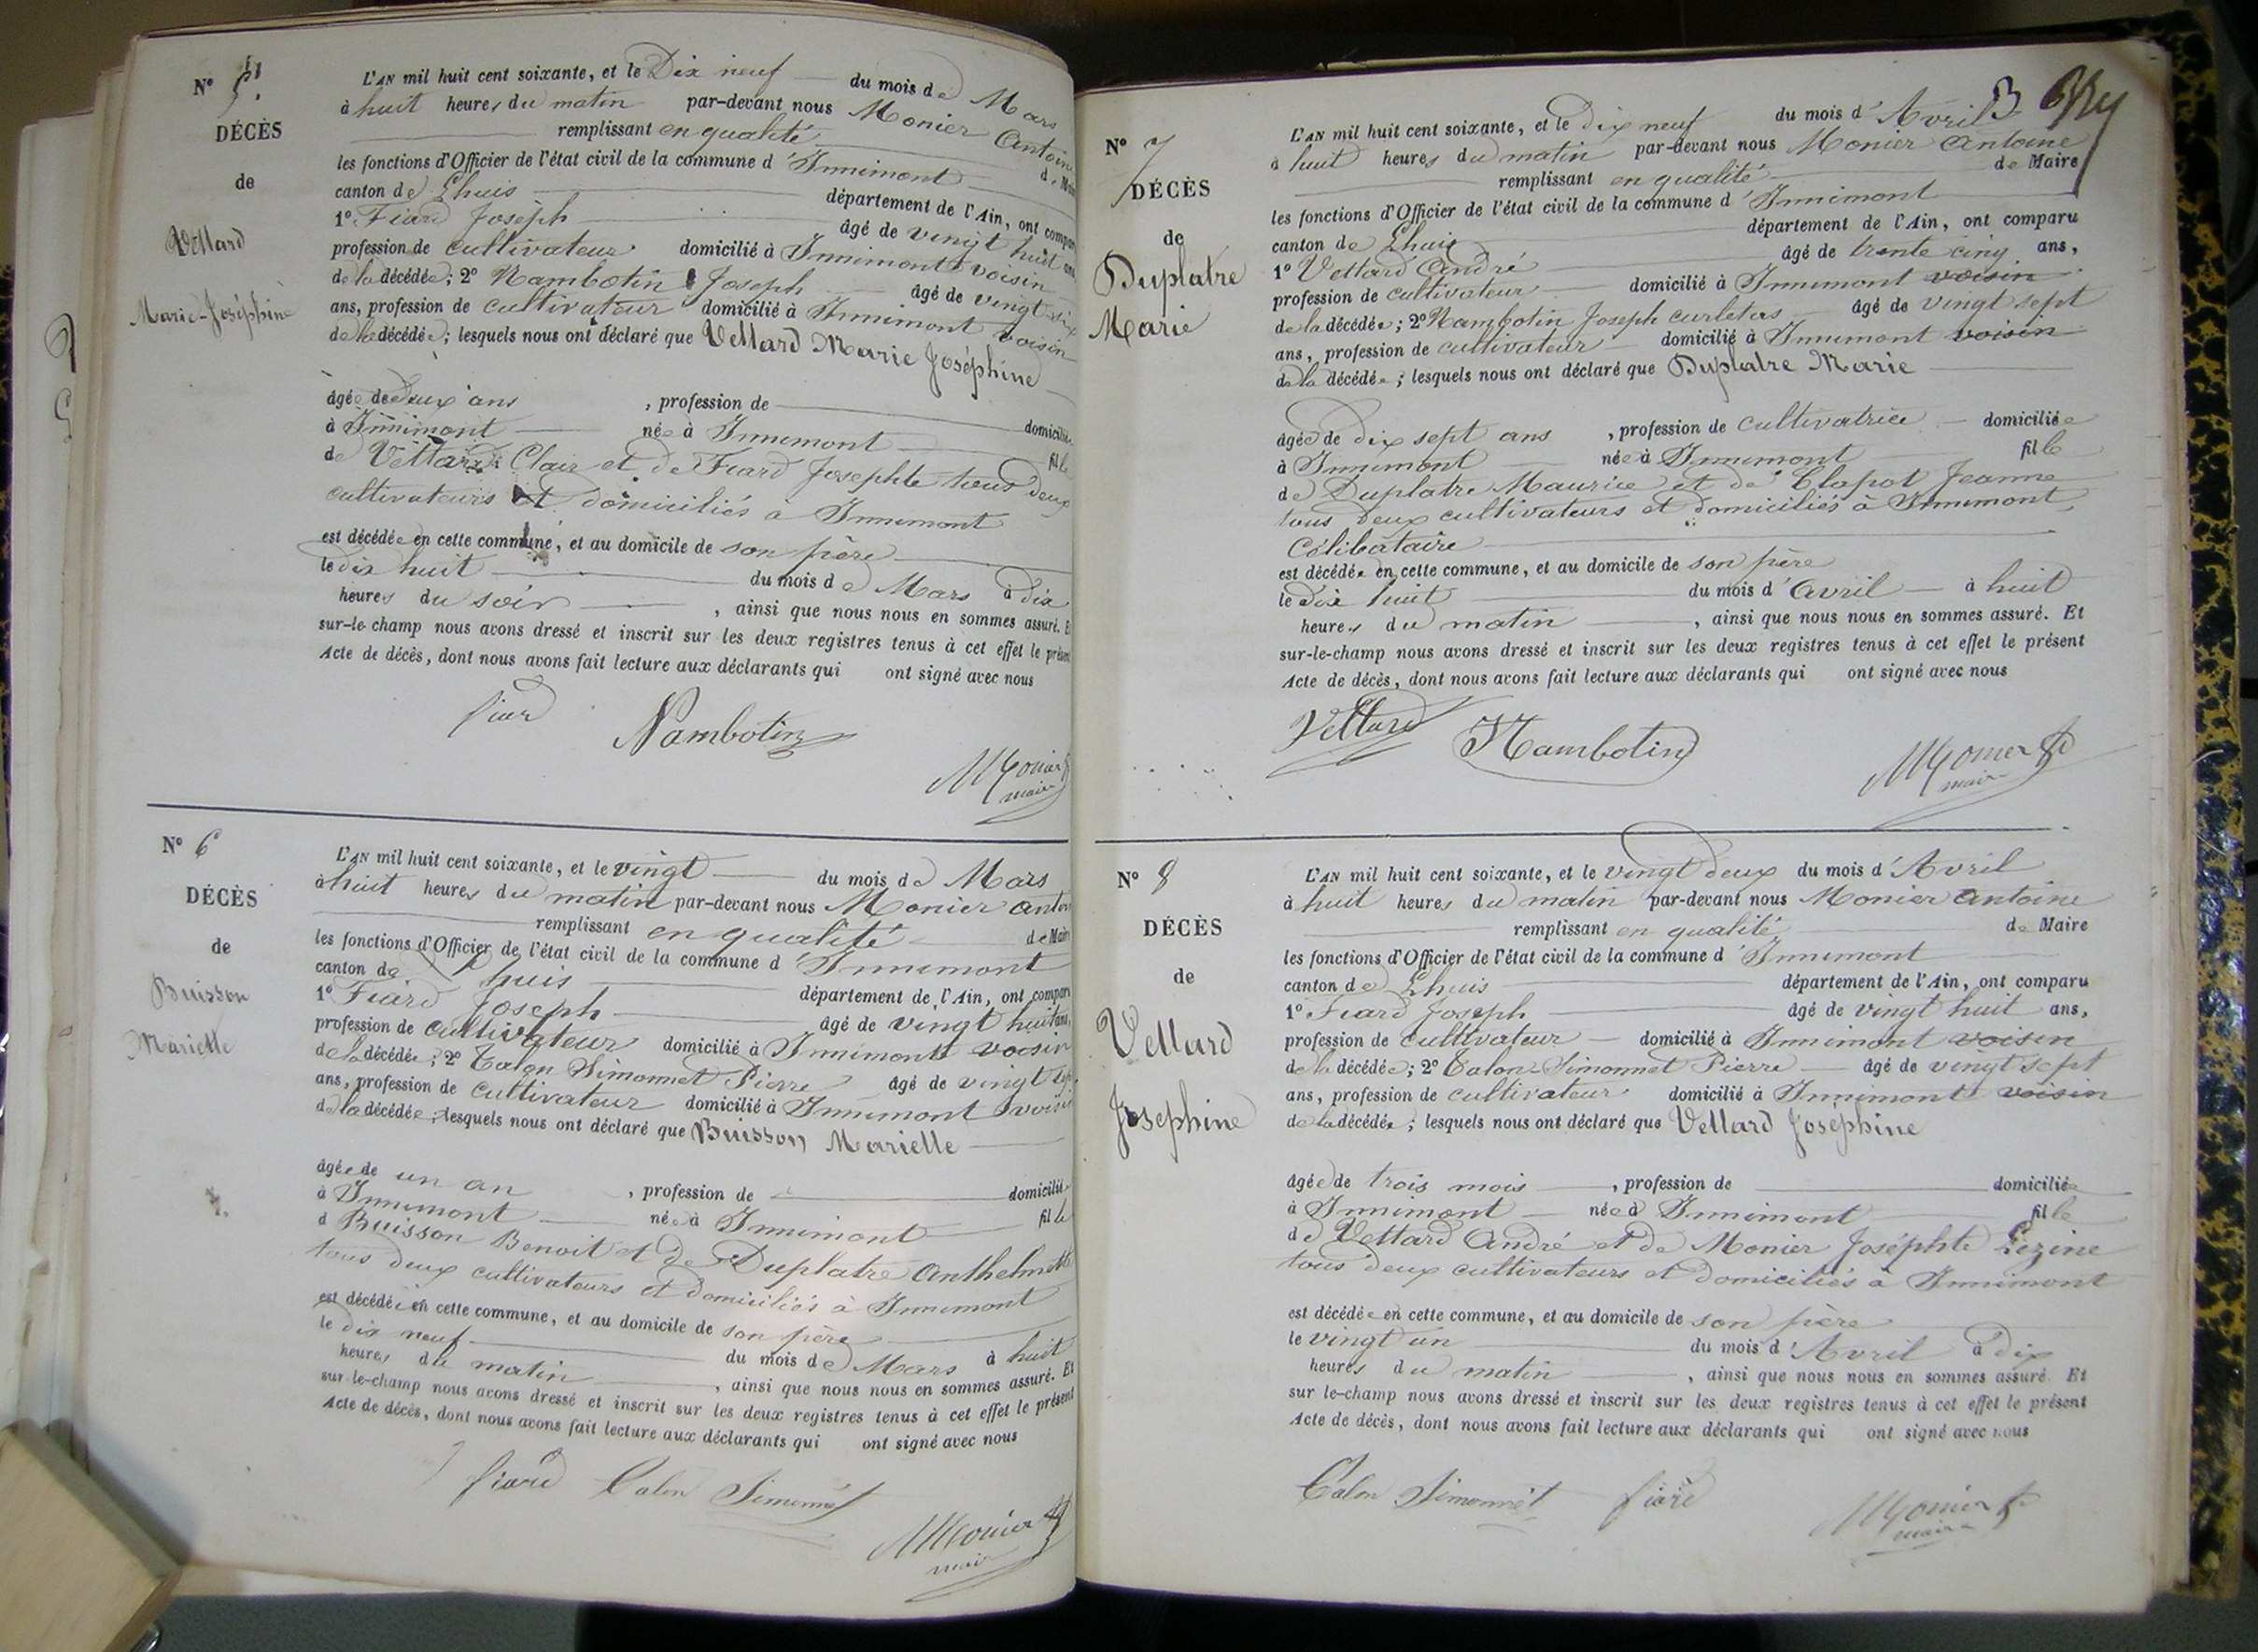 N° 5.
DÉCÈS
de
Vettard
Marie-Joséphine
L'AN mil huit cent soixante, et le Dix neuf du mois de Mars
à huit heures du matin par-devant nous Monier Antoine
remplissant en qualité de Maire
les fonctions d'Officier de l'état civil de la commune d'Innimont
canton de Lhuis département de l'Ain, ont comparu
1° Fiard Joseph âgé de vingt huit ans
profession de cultivateur domicilié à Innimont voisin
de la décédée; 2° Nambotin Joseph âgé de vingt six
ans, profession de cultivateur domicilié à Innimont voisin
de la décédée; lesquels nous ont déclaré que Vettard Marie Joséphine
âgée de deux ans, profession de domiciliée
à Innimont née à Innimont fille
de Vettard Clair et de Fiard Josephte tous deux
cultivateurs et domiciliés à Innimont
est décédée en cette commune, et au domicile de son père
le dix huit du mois de Mars à dix
heures du soir, ainsi que nous nous en sommes assuré. Et
sur-le-champ nous avons dressé et inscrit sur les deux registres tenus à cet effet le présent
Acte de décès, dont nous avons fait lecture aux déclarants qui ont signé avec nous
fiard Nambotin Monier
maire
N° 6
DÉCÈS
de
Buisson
Mariette
L'AN mil huit cent soixante, et le vingt du mois de Mars
à huit heures du matin par-devant nous Monier Antoine
remplissant en qualité de Maire
les fonctions d'Officier de l'état civil de la commune d'Innimont
canton de Lhuis département de l'Ain, ont comparu
1° Fiard Joseph âgé de vingt huit ans,
profession de cultivateur domicilié à Innimont voisin
de la décédée; 2° Talon Simonnet Pierre âgé de vingt sept
ans, profession de cultivateur domicilié à Innimont voisin
de la décédée; lesquels nous ont déclaré que Buisson Mariette
âgée de un an, profession de domiciliée
à Innimont née à Innimont fille
d Buisson Benoit et de Duplatre Anthelmette
tous deux cultivateurs et domiciliés à Innimont
est décédée en cette commune, et au domicile de son père
le dix neuf du mois de Mars à huit
heures du matin, ainsi que nous nous en sommes assuré. Et
sur-le-champ nous avons dressé et inscrit sur les deux registres tenus à cet effet le présent
Acte de décès, dont nous avons fait lecture aux déclarants qui ont signé avec nous
fiard Talon Simonnet
Monier
maire
3
N° 7
DÉCÈS
de
Duplatre
Marie
L'AN mil huit cent soixante, et le dix neuf du mois d'Avril
à huit heures du matin par-devant nous Monier Antoine
remplissant en qualité de Maire
les fonctions d'Officier de l'état civil de la commune d'Innimont
canton de Lhuis département de l'Ain, ont comparu
1° Vettard André âgé de trente cinq ans,
profession de cultivateur domicilié à Innimont voisin
de la décédée; 2° Nambotin Joseph curletas âgé de vingt sept
ans, profession de cultivateur domicilié à Innimont voisin
de la décédée; lesquels nous ont déclaré que Duplatre Marie
âgée de dix sept ans, profession de cultivatrice domiciliée
à Innimont née à Innimont fille
de Duplatre Maurice et de Clapot Jeanne
tous deux cultivateurs et domiciliés à Innimont,
Célibataire
est décédée en cette commune, et au domicile de son père
le dix huit du mois d'Avril à huit
heures du matin, ainsi que nous nous en sommes assuré. Et
sur-le-champ nous avons dressé et inscrit sur les deux registres tenus à cet effet le présent
Acte de décès, dont nous avons fait lecture aux déclarants qui ont signé avec nous
Vettard Nambotin Monier
maire
N° 8
DÉCÈS
de
Vettard
Josephine
L'AN mil huit cent soixante, et le vingt deux du mois d'Avril
à huit heures du matin par-devant nous Monier Antoine
remplissant en qualité de Maire
les fonctions d'Officier de l'état civil de la commune d'Innimont
canton de Lhuis département de l'Ain, ont comparu
1° Fiard Joseph âgé de vingt huit ans,
profession de cultivateur domicilié à Innimont voisin
de la décédée; 2° Talon Simonnet Pierre âgé de vingt sept
ans, profession de cultivateur domicilié à Innimont voisin
de la décédée; lesquels nous ont déclaré que Vettard Joséphine
âgée de trois mois, profession de domiciliée
à Innimont née à Innimont fille
de Vettard André et de Monier Joséphte Lezine
tous deux cultivateurs et domiciliés à Innimont
est décédée en cette commune, et au domicile de son père
le vingt un du mois d'Avril à dix
heures du matin, ainsi que nous nous en sommes assuré. Et
sur le-champ nous avons dressé et inscrit sur les deux registres tenus à cet effet le présent
Acte de décès, dont nous avons fait lecture aux déclarants qui ont signé avec nous
Talon Simonnet fiard Monier
maire